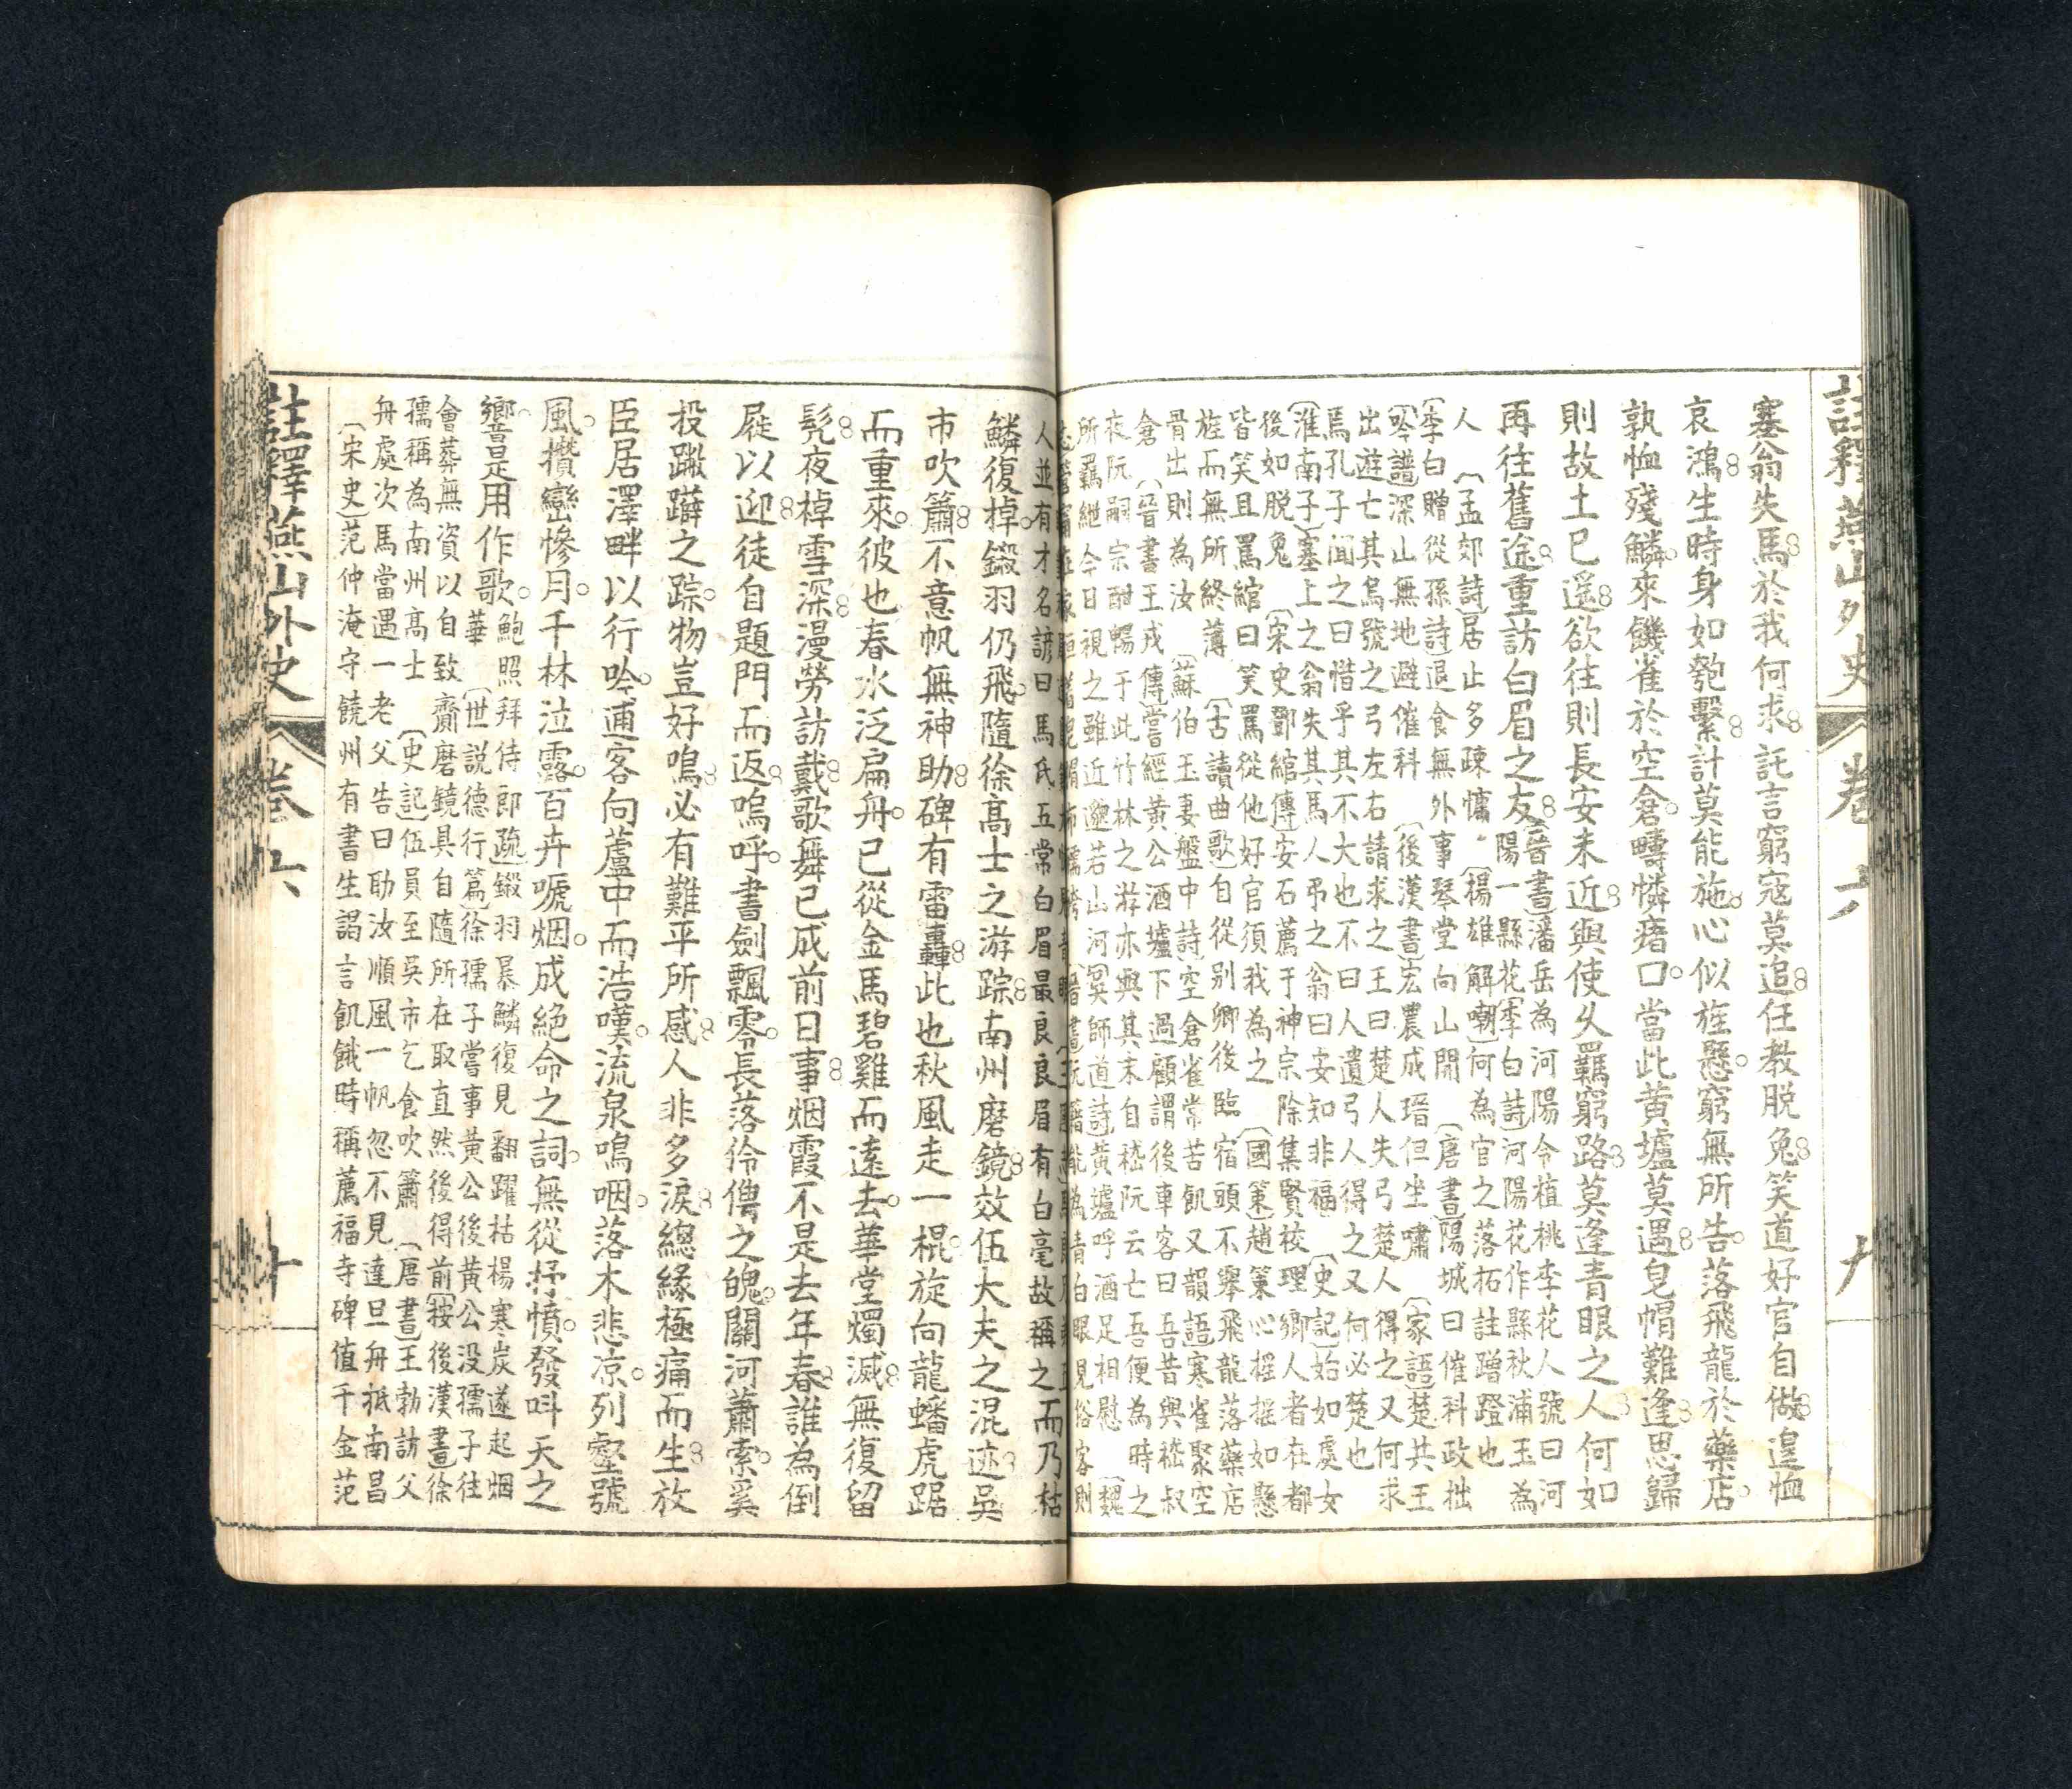 註釋燕山外史 卷六 九
塞翁失馬於我何求託言窮寇莫追任教脱兔笑道好官自做遑恤
哀鴻生時身如匏繫計莫能施心似旌懸窮無所告落飛龍於藥店
孰恤殘鱗來饑雀於空倉疇憐瘏口當此黄壚莫遇皂帽難逢思歸
則故土已遥欲往則長安未近與使乆羈窮路莫逢青眼之人何如
再往舊途重訪白眉之友
〔晉書〕潘岳為河陽令植桃李花人號曰河
陽一縣花〔李白詩〕河陽花作縣秋浦玉為
人 〔孟郊詩〕居止多疎慵 〔楊雄解嘲〕何為官之落拓註蹭蹬也
〔李白贈從孫詩〕退食無外事琴堂向山開 〔唐書〕陽城曰催科政拙
〔琴譜〕深山無地避催科 〔後漢書〕宏農成瑨但坐嘯 〔家語〕楚共王
出遊亡其烏號之弓左右請求之王曰楚人失弓楚人得之又何求
焉孔子聞之曰惜乎其不大也不曰人遺弓人得之又何必楚也
〔淮南子〕塞上之翁失其馬人弔之翁曰安知非福 〔史記〕始如處女
後如脱兔 〔宋史鄧綰傳〕安石薦于神宗除集賢校理卿人者在都
皆笑且罵綰曰笑罵從他好官須我為之 〔國策〕趙策心摇摇如懸
旌而無所終薄 〔古讀曲歌〕自從别卿後臨宿頭不舉飛龍落藥店
骨出則為汝 〔蘇伯玉妻盤中詩〕空倉雀常苦飢又韻語寒雀聚空
倉 〔晉書王戎傳〕嘗經黄公酒壚下過顧謂後車客曰吾昔與嵇叔
夜阮嗣宗酣暢于此竹林之游亦與其末自嵇阮云亡吾便為時之
所羈紲今日視之雖近邈若山河 〔吳師道詩〕黄壚呼酒足相慰 〔魏
人並有才名諺曰馬氏五常白眉最良良眉有白毫故稱之而乃枯
鱗復掉鎩羽仍飛隨徐髙士之游踪南州磨鏡效伍大夫之混迹吳
市吹簫不意帆無神助碑有雷轟此也秋風走一棍旋向龍蟠虎踞
而重來彼也春水泛扁舟已從金馬碧雞而遠去華堂燭滅無復留
髠夜棹雪深漫勞訪戴歌舞已成前日事烟霞不是去年春誰為倒
屣以迎徒自題門而返嗚呼書劍飄零長落伶俜之魄關河蕭索奚
投蹴躃之踪物豈好鳴必有難平所感人非多淚總緣極痛而生放
臣居澤畔以行吟逋客向蘆中而浩嘆流泉鳴咽落木悲凉列壑號
風攢巒慘月千林泣露百卉啼烟成絶命之詞無從抒憤發呌天之
響是用作歌
鮑照拜侍郎疏鎩羽暴鱗復見翻躍枯楊寒炭遂起烟
華 〔世説德行篇〕徐孺子嘗事黄公後黄公没孺子往
會葬無資以自致齎磨鏡具自隨所在取直然後得前〔按後漢書〕徐
孺稱為南州髙士 〔史記〕伍員至吳市乞食吹簫 〔唐書〕王勃訪父
舟處次馬當遇一老父告曰助汝順風一帆忽不見達旦舟抵南昌
〔宋史〕范仲淹守饒州有書生謁言飢餓時稱薦福寺碑值千金范
註釋燕山外史 卷六 十